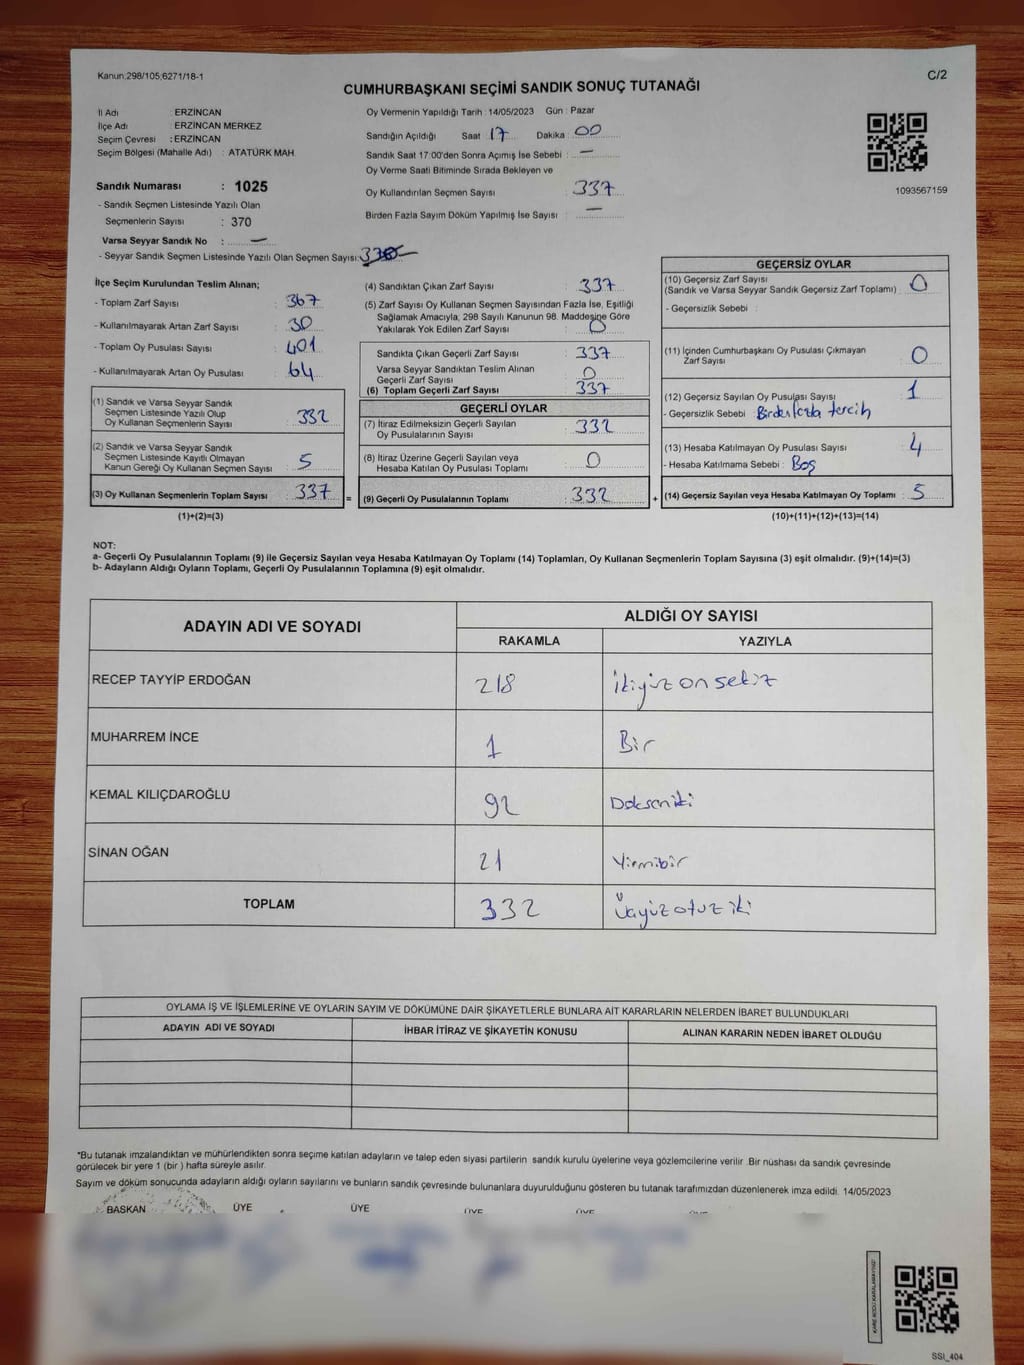 Kanun:298/105;6271/18-1
C/2
CUMHURBAŞKANI SEÇİMİ SANDIK SONUÇ TUTANAĞI
İl Adı : ERZİNCAN
İlçe Adı : ERZİNCAN MERKEZ
Seçim Çevresi : ERZİNCAN
Seçim Bölgesi (Mahalle Adı) : ATATÜRK MAH.
Sandık Numarası : 1025
- Sandık Seçmen Listesinde Yazılı Olan
Seçmenlerin Sayısı : 370
Varsa Seyyar Sandık No : —
- Seyyar Sandık Seçmen Listesinde Yazılı Olan Seçmen Sayısı:
Oy Vermenin Yapıldığı Tarih : 14/05/2023 Gün : Pazar
Sandığın Açıldığı Saat 17 Dakika 00
Sandık Saat 17:00'den Sonra Açımış İse Sebebi : —
Oy Verme Saati Bitiminde Sırada Bekleyen ve
Oy Kullandırılan Seçmen Sayısı : 337
Birden Fazla Sayım Döküm Yapılmış İse Sayısı : —
1093567159
İlçe Seçim Kurulundan Teslim Alınan;
- Toplam Zarf Sayısı : 367
- Kullanılmayarak Artan Zarf Sayısı : 30
- Toplam Oy Pusulası Sayısı : 401
- Kullanılmayarak Artan Oy Pusulası : 64
(1) Sandık ve Varsa Seyyar Sandık
Seçmen Listesinde Yazılı Olup
Oy Kullanan Seçmenlerin Sayısı : 332
(2) Sandık ve Varsa Seyyar Sandık
Seçmen Listesinde Kayıtlı Olmayan
Kanun Gereği Oy Kullanan Seçmen Sayısı : 5
(3) Oy Kullanan Seçmenlerin Toplam Sayısı : 337
(1)+(2)=(3)
(4) Sandıktan Çıkan Zarf Sayısı : 337
(5) Zarf Sayısı Oy Kullanan Seçmen Sayısından Fazla İse, Eşitliği
Sağlamak Amacıyla; 298 Sayılı Kanunun 98. Maddesine Göre
Yakılarak Yok Edilen Zarf Sayısı : 0
Sandıkta Çıkan Geçerli Zarf Sayısı : 337
Varsa Seyyar Sandıktan Teslim Alınan
Geçerli Zarf Sayısı : 0
(6) Toplam Geçerli Zarf Sayısı : 337
GEÇERLİ OYLAR
(7) İtiraz Edilmeksizin Geçerli Sayılan
Oy Pusulalarının Sayısı : 332
(8) İtiraz Üzerine Geçerli Sayılan veya
Hesaba Katılan Oy Pusulası Toplamı : 0
= (9) Geçerli Oy Pusulalarının Toplamı : 332
GEÇERSİZ OYLAR
(10) Geçersiz Zarf Sayısı
(Sandık ve Varsa Seyyar Sandık Geçersiz Zarf Toplamı) : 0
- Geçersizlik Sebebi :
(11) İçinden Cumhurbaşkanı Oy Pusulası Çıkmayan
Zarf Sayısı : 0
(12) Geçersiz Sayılan Oy Pusulası Sayısı : 1
- Geçersizlik Sebebi : Birden fazla tercih
(13) Hesaba Katılmayan Oy Pusulası Sayısı : 4
- Hesaba Katılmama Sebebi : Boş
+ (14) Geçersiz Sayılan veya Hesaba Katılmayan Oy Toplamı : 5
(10)+(11)+(12)+(13)=(14)
NOT:
a- Geçerli Oy Pusulalarının Toplamı (9) ile Geçersiz Sayılan veya Hesaba Katılmayan Oy Toplamı (14) Toplamları, Oy Kullanan Seçmenlerin Toplam Sayısına (3) eşit olmalıdır. (9)+(14)=(3)
b- Adayların Aldığı Oyların Toplamı, Geçerli Oy Pusulalarının Toplamına (9) eşit olmalıdır.
ADAYIN ADI VE SOYADI
ALDIĞI OY SAYISI
RAKAMLA YAZIYLA
RECEP TAYYİP ERDOĞAN 218 İkiyüz on sekiz
MUHARREM İNCE 1 Bir
KEMAL KILIÇDAROĞLU 92 Doksan iki
SİNAN OĞAN 21 Yirmibir
TOPLAM 332 Üçyüz otuz iki
OYLAMA İŞ VE İŞLEMLERİNE VE OYLARIN SAYIM VE DÖKÜMÜNE DAİR ŞİKAYETLERLE BUNLARA AİT KARARLARIN NELERDEN İBARET BULUNDUKLARI
ADAYIN ADI VE SOYADI İHBAR İTİRAZ VE ŞİKAYETİN KONUSU ALINAN KARARIN NEDEN İBARET OLDUĞU
*Bu tutanak imzalandıktan ve mühürlendikten sonra seçime katılan adayların ve talep eden siyasi partilerin sandık kurulu üyelerine veya gözlemcilerine verilir. Bir nüshası da sandık çevresinde
görülecek bir yere 1 (bir ) hafta süreyle asılır.
Sayım ve döküm sonucunda adayların aldığı oyların sayılarını ve bunların sandık çevresinde bulunanlara duyurulduğunu gösteren bu tutanak tarafımızdan düzenlenerek imza edildi. 14/05/2023
BAŞKAN ÜYE ÜYE ÜYE ÜYE
SSI_404